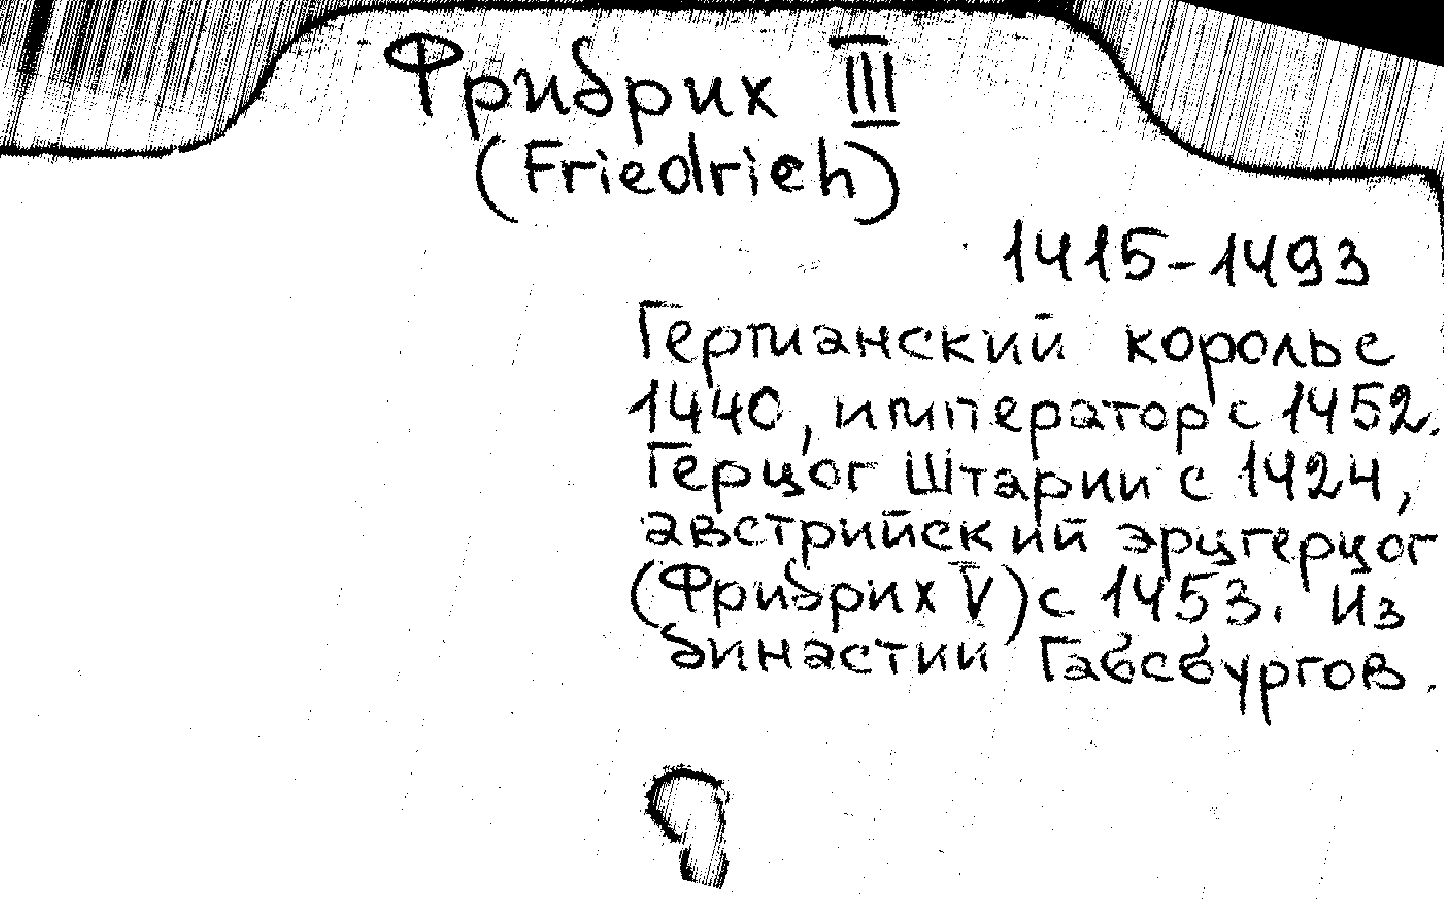 Фридрих III
(Friedrich)
1415-1493
Германский король с
1440, император с 1452.
Герцог Штарии с 1424,
австрийский эрцгерцог
(Фридрих V) с 1453. Из
династии Габсбургов.